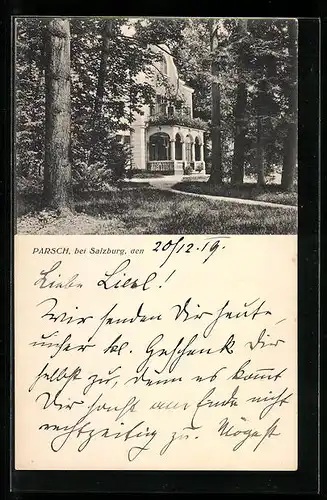 PARSCH, bei Salzburg, den 20/12.19.
Liebe Liesl!
Wir senden Dir heute,
unser kl. Geschenk Dir
selbst zu, denn es kommt
Dir sonst am Ende nicht
rechtzeitig zu. Mögest